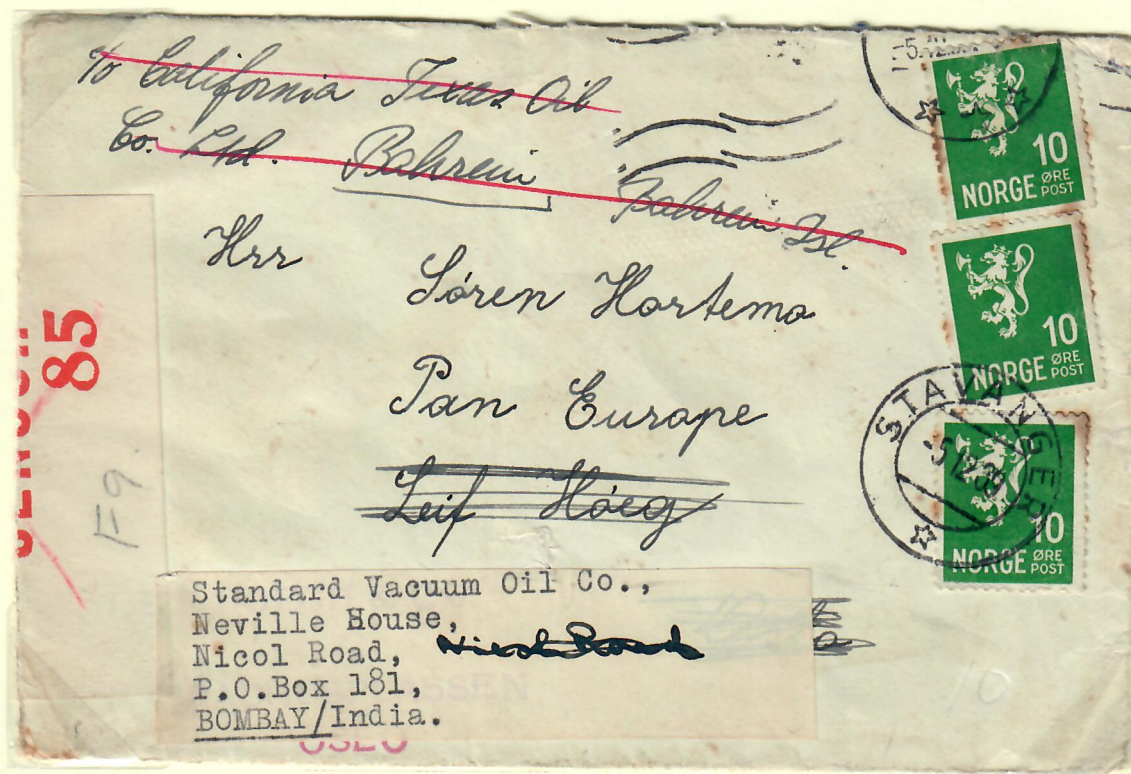 c/o California Texas Oil
Co. Ltd. Bahrein Bahrein Isl.
Hrr Sören Hortemo
Pan Europe
Leif Höeg
Standard Vacuum Oil Co.,
Neville House,
Nicol Road,
P.O.Box 181,
BOMBAY/India.
SSEN
OSLO
85
F9
10
NORGE ØRE POST
10
NORGE ØRE POST
10
NORGE ØRE POST
STAVANGER
-5.12.39